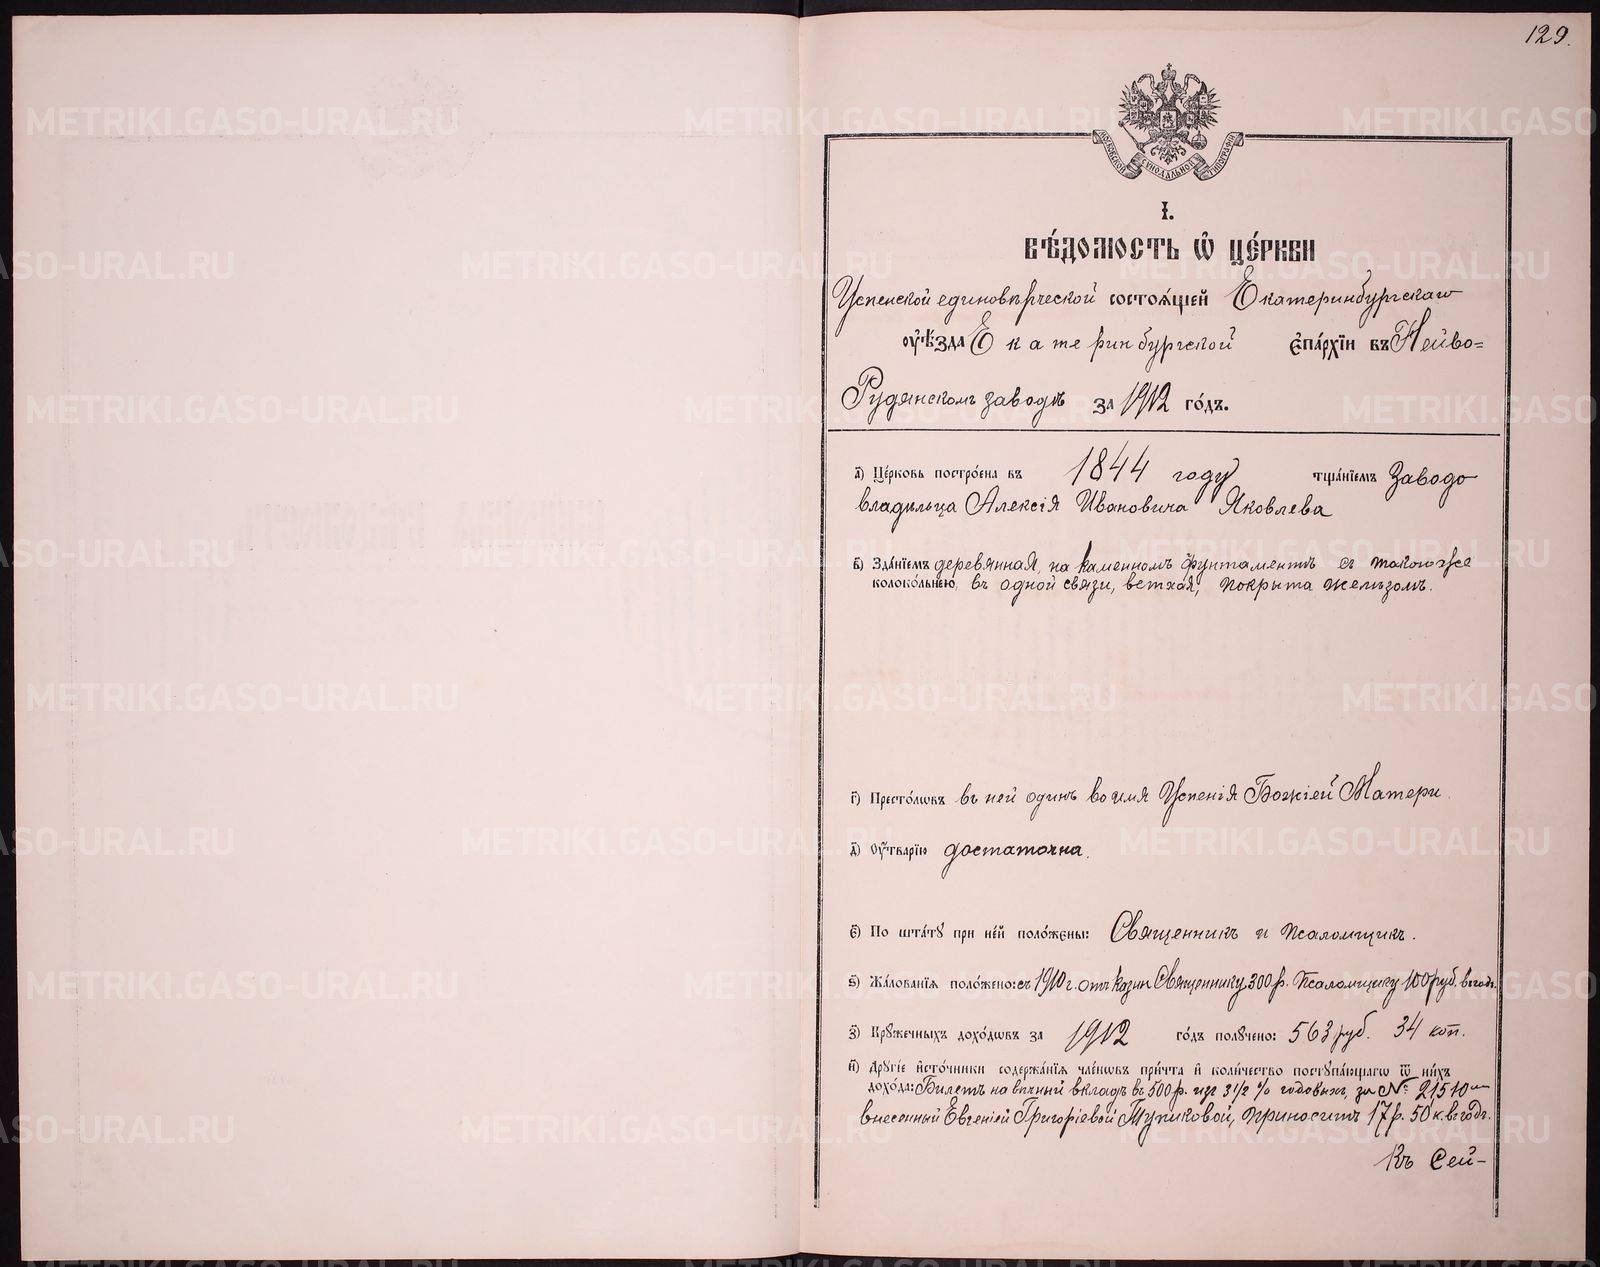 129.
МОСКОВСКОЙ СѴНОДАЛЬНОЙ ТИПОГРАФІИ
І.
ВѢ́ДОМОСТЬ Ѽ ЦЕ́РКВИ
Успенской единовѣрческой состоѧ́щей Екатеринбургскаго
ᲂу҆ѣ́зда Екатеринбургской є҆па́рхїи въ Нейво=
Рудянскомъ заводѣ за 1912 го́дъ.
а҃) Це́рковь постро́ена въ 1844 году тща́нїемъ Заводо
владѣльца Алексія Ивановича Яковлева
в҃) Зда́нїемъ деревянная, на каменномъ фунтаментѣ съ такою же
колоко́льнею, въ одной связи, ветхая, покрыта желѣзомъ.
г҃) Престо́лѡвъ въ ней одинъ во имя Успенія Божіей Матери.
д҃) Оу҆́тварїю достаточна.
є҃) По шта́тꙋ при не́й поло́жены: Священникъ и псаломщикъ.
ѕ҃) Жа́лованїѧ поло́жено: съ 1910 г. отъ казны Священнику 300 р. Псаломщику 100 руб. въ годъ.
з҃) Крꙋ́жечныхъ дохо́дѡвъ за 1912 го́дъ полꙋ́чено: 563 руб. 34 коп.
и҃) Дрꙋгі́е и҆сто́чники содержа́нїѧ чле́нѡвъ при́чта и҆ коли́чество постꙋпа́ющагѡ ѿ ни́хъ
дохо́да: Билетъ на вѣчный вкладъ въ 500 р. изъ 3 1/2 % годовыхъ, за № 21510
внесенный Евгеніей Григоріевой Тупиковой, приноситъ 17 р. 50 к. въ годъ.
Къ сей-
METRIKI.GASO-URAL.RU